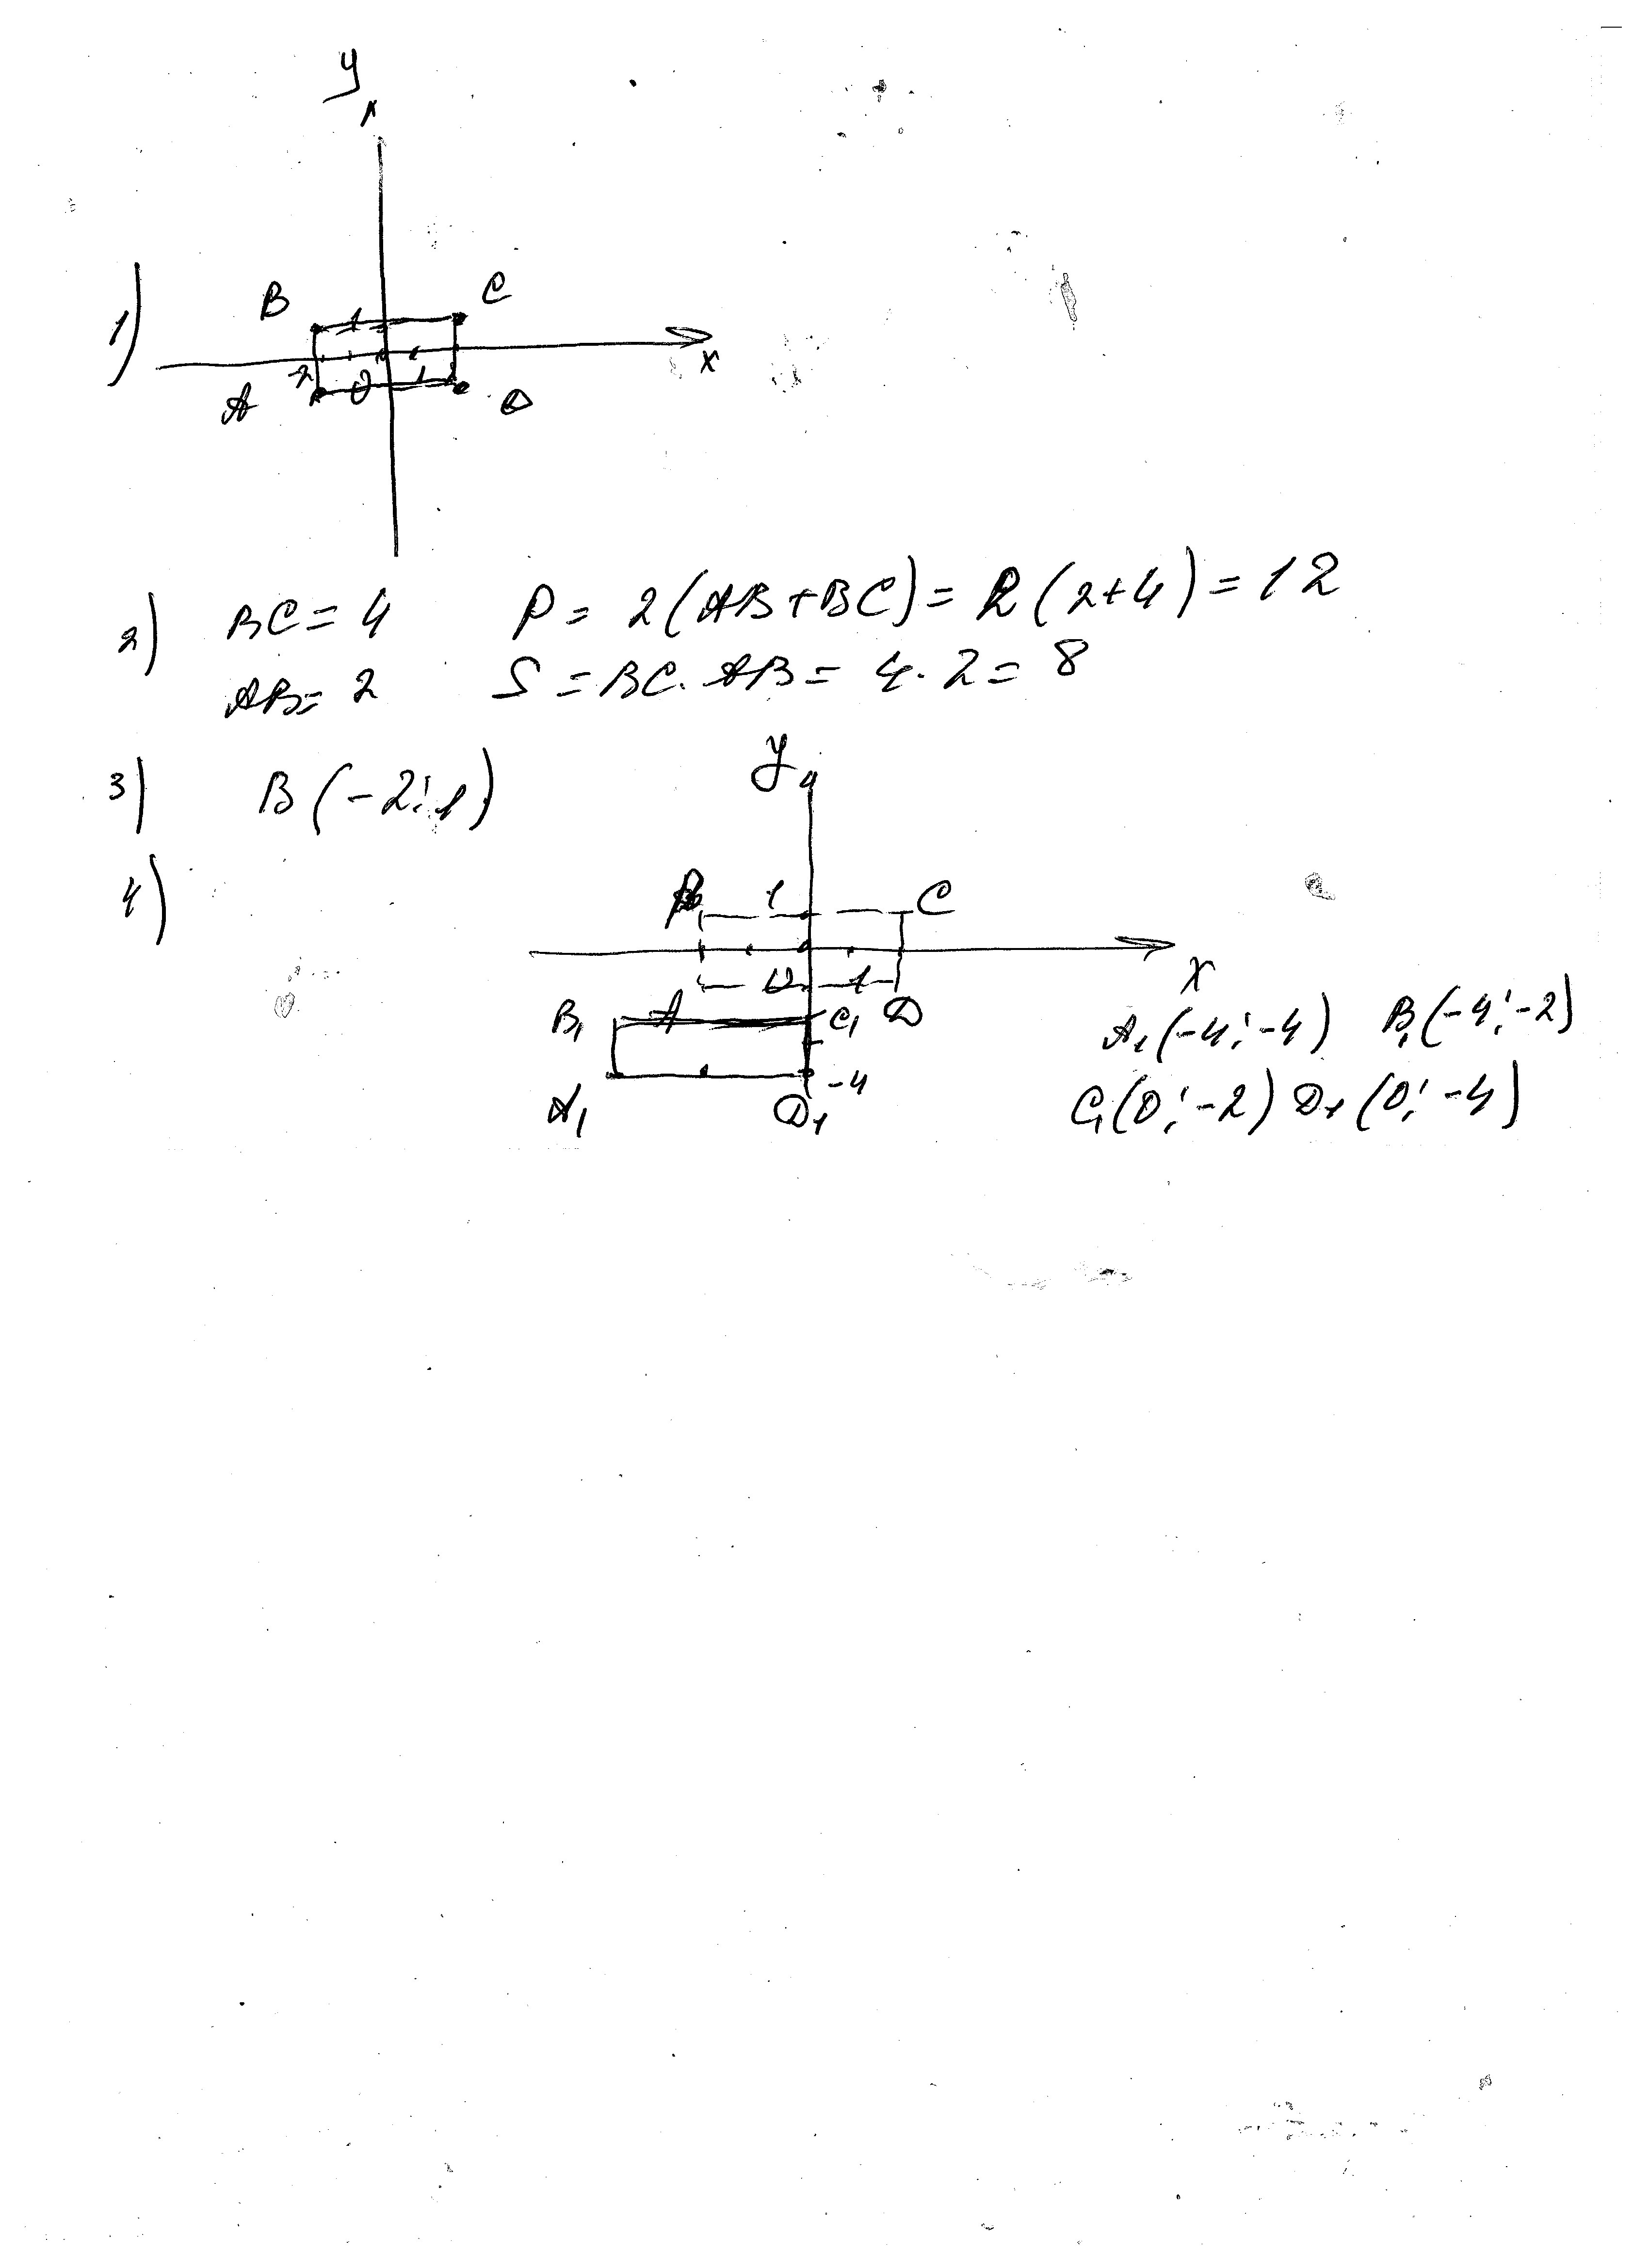 y
1)
B 1 C
x
-2 0 1
A D
2) BC = 4 P = 2(AB+BC) = 2(2+4) = 12
AB = 2 S = BC · AB = 4 · 2 = 8
3) B(-2; 1)
y
4)
B 1 C
x
0 1
B₁ A C₁ D
A₁(-4; -4) B₁(-4; -2)
-4
A₁ D₁
C₁(0; -2) D₁(0; -4)